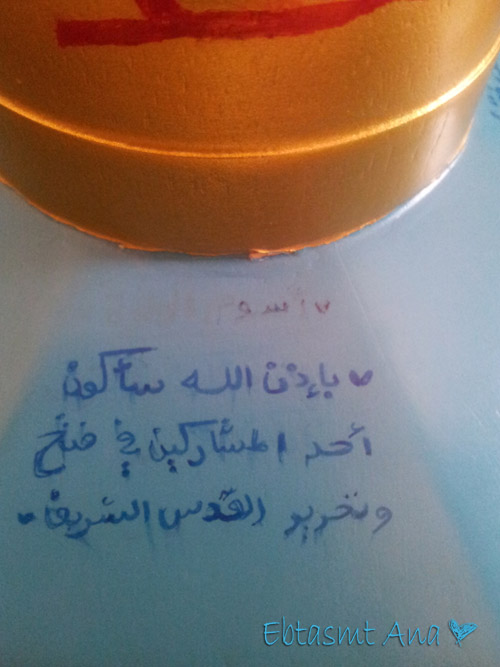 ♥ أسو
♥ بإذن الله سأكون
أحد المشاركين في فتح
وتحرير القدس الشريف.
Ebtasmt Ana ♥